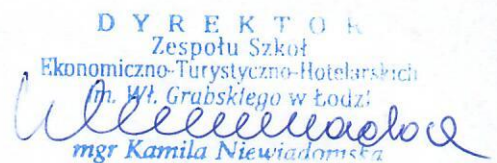 DYREKTOR
Zespołu Szkół
Ekonomiczno-Turystyczno-Hotelarskich
im. Wł. Grabskiego w Łodzi
mgr Kamila Niewiadomska